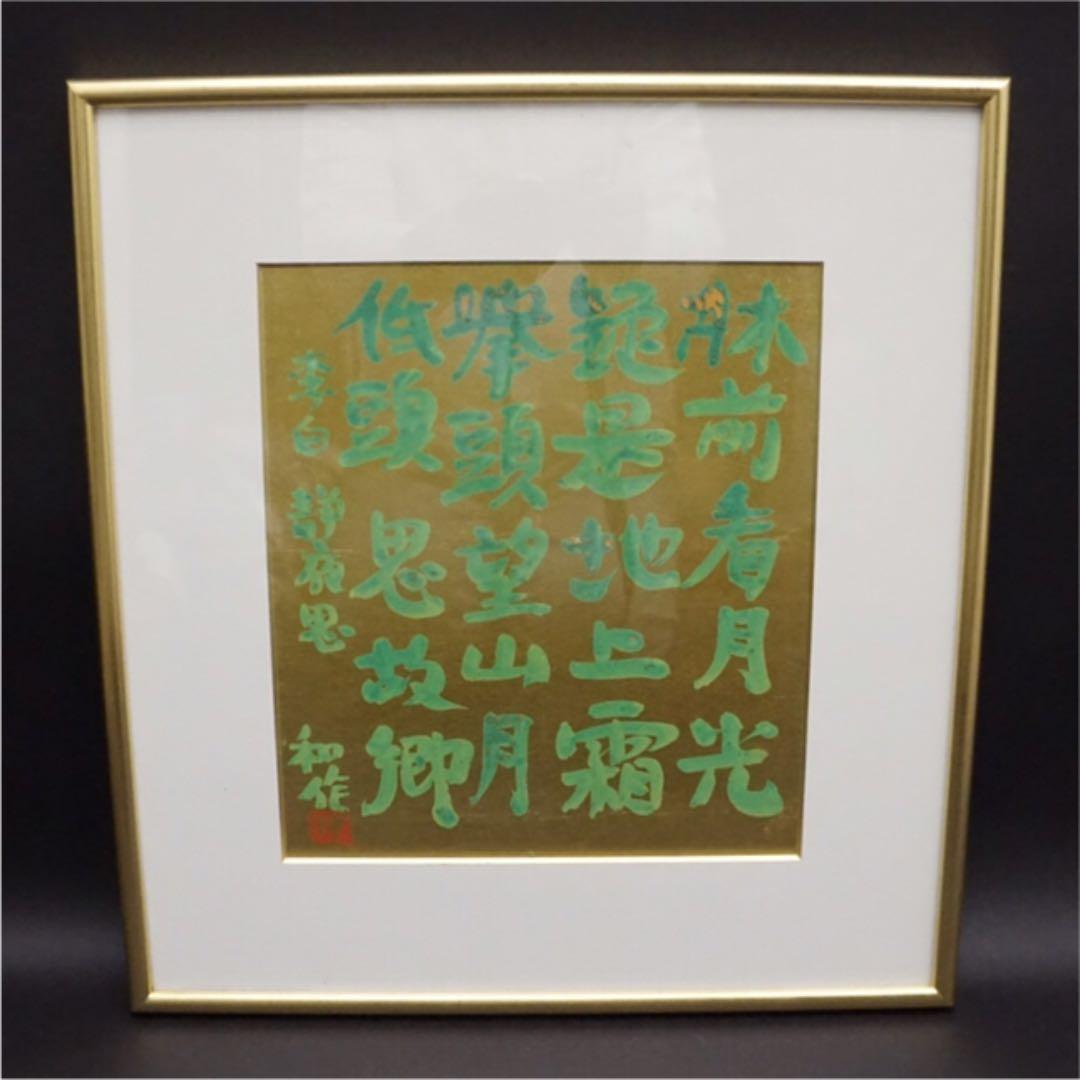 牀前看月光
疑是地上霜
擧頭望山月
低頭思故郷
李白 静夜思 和作